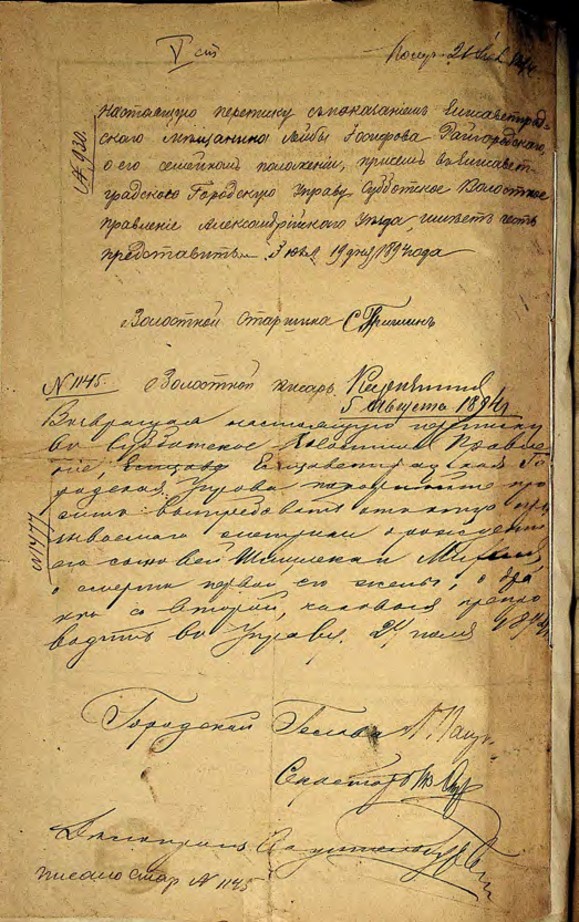 V ст
Получ. 21
№ 930.
Настоящую переписку съ показаніемъ Елисаветград-
скаго мѣщанина Лейбы Іосифова Райгородскаго,
о его семейномъ положеніи, присемъ въ Елисавет-
градскую Городскую Управу Субботское Волостное
Правленіе Александрійскаго Уѣзда, имѣетъ честь
представить. Іюля 19 дня 1894 года
Волостной Старшина С. Гришинъ
№ 1145. Волостной писарь
5 Августа 1894 г
Возвращая настоящую переписку
въ Субботское Волостное Правле-
ніе, Елисаветградская Го-
родская Управа про
ситъ вытребовать отъ
метрики о рожденіи
его сыновей
о смерти первой его жены, о бра
кѣ со второй, каковыя препро
водить въ Управу. 24 Іюля 1894 г.
№ 1477
Городской Голова
Секретарь
писано стар № 1145